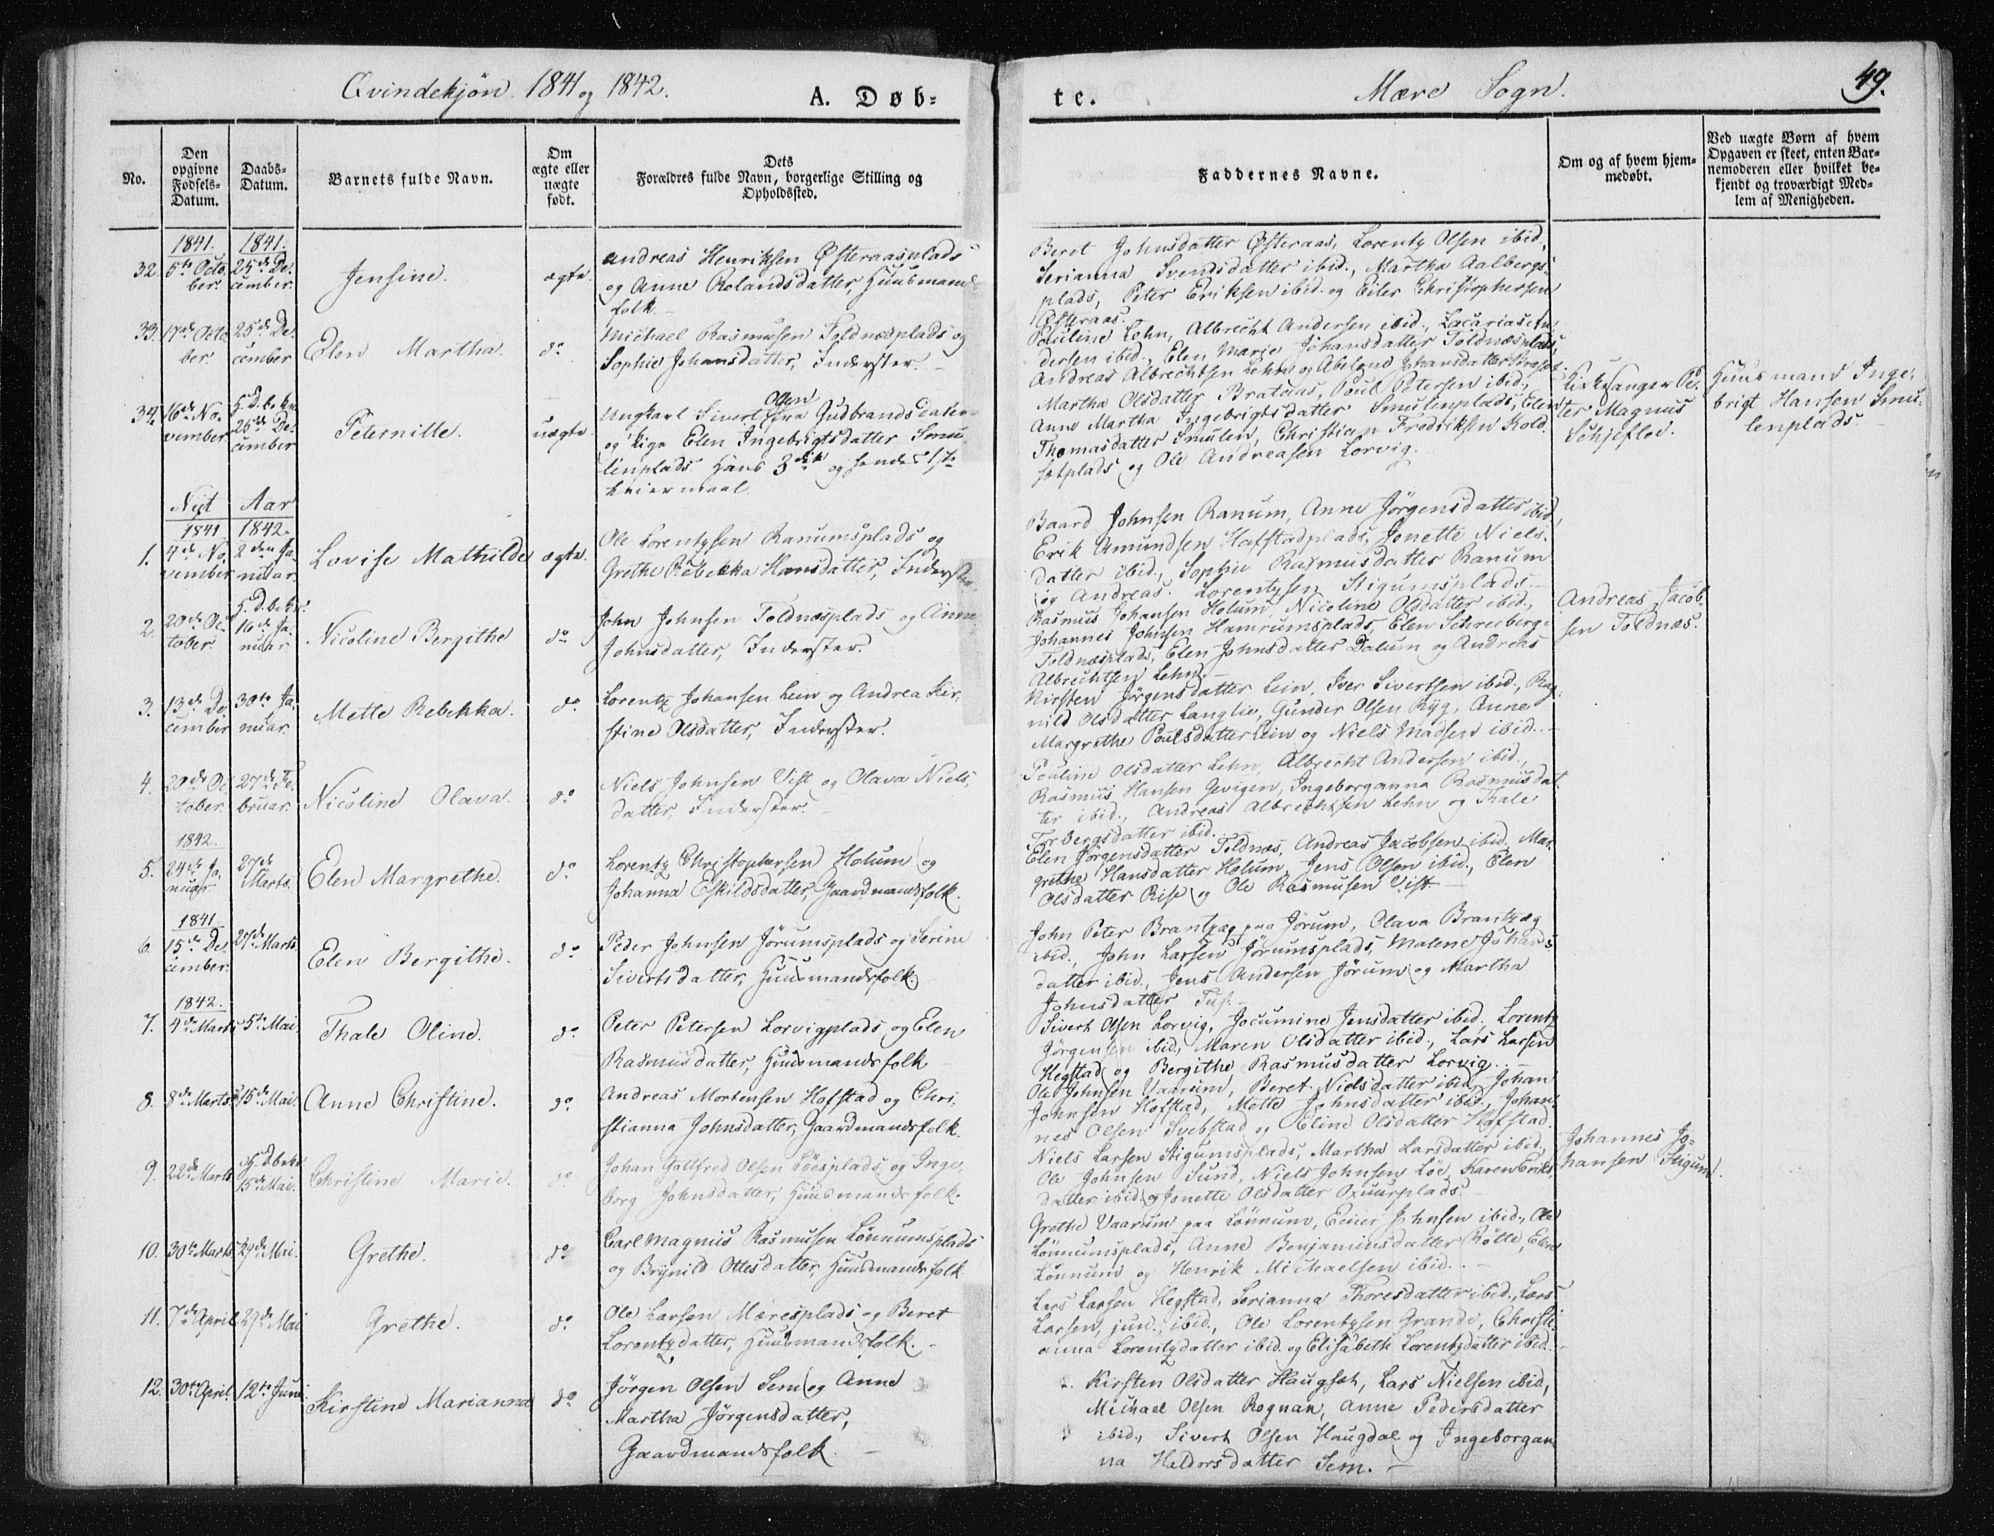 Qvindekjøn 1841 og 1842.
A. Døb-
te.
Mære Sogn.
49.
No.
Den opgivne Fødsels-Datum.
Daabs-Datum.
Barnets fulde Navn.
Om ægte eller uægte født.
Dets Forældres fulde Navn, borgerlige Stilling og Opholdssted.
Faddernes Navne.
Om og af hvem hjem-
medøbt.
Ved uægte Børn af hvem
Opgaven er skeet, enten Bar-
nemoderen eller hvilket be-
kjendt og troværdigt Med-
lem af Menigheden.
1841. 1841.
32. 5te Octo- ber. 25de De- cember. Jensine. ægte.
Andreas Henriksen Østeraasplads
og Anne Rolandsdatter, Huusmands-
folk.
Beret Johnsdatter Østeraas, Lorentz Olsen ibid.,
Serianna Svendsdatter ibid., Martha Aalbergs-
plads, Peter Eriksen ibid. og Eiler Christophersen
Østeraas.
33. 17de Octo- ber. 25de De- cember Elen Martha. do
Michael Rasmusen Toldnæsplads og
Sophie Johansdatter, Inderster.
Pauline Lehn, Albrecht Andersen ibid., Zacarias An-
dersen ibid., Elen Marie Johansdatter Toldnæsplads,
Andreas Albrechtsen Lehn og Abelone Johansdatter
34. 16de No- vember 5. D. b. e. Kr. 25de De- cember Peternille. uægte
Ungkarl Sivert Olsen fra Gudbrandsdalen
og Pige Elen Ingebrigtsdatter Smu-
lenplads Hans 3die og hendes 1ste
Leiermaal.
Martha Olsdatter Brataas, Poul Petersen ibid.,
Anne Martha Ingebrigtsdatter Smulenplads, Elen
Thomasdatter Smulen, Christian Fredriksen Rold-
setplads og Ole Andreasen Lorvig.
Kirkesanger Pe-
ter Magnus
Schjefloe.
Huusmand Inge-
brigt Hansen Smu-
lenplads.
Nyt Aar
1841 1842.
1. 4de No- vember 2den Ja- nuar. Lovise Mathilde ægte.
Ole Lorentzsen Ranumsplads og
Grethe Rebekka Hansdatter, Inderster.
Baard Johnsen Ranum, Anne Jörgensdatter ibid,
Erik Amundsen Hafstadplads, Jonette Niels-
datter ibid., Sophie Rasmusdatter Ranum
og Andreas Lorentzsen Stigumsplads.
2. 20de Oc- tober. 5. D. b. e. Kr. 16de Ja- nuar Nicoline Bergithe do
John Johnsen Toldnæsplads og Anne
Johnsdatter, Inderster.
Rasmus Johansen Holum, Nicoline Olsdatter ibid,
Johannes Johnsen Hamrumsplads, Elen Schreiberg-
Toldnæsplads, Elen Johnsdatter Dalum og Andreas
Albrechtsen Lehn.
Andreas Jacob-
sen Toldnæs.
3. 13de De- cember 30te Ja- nuar. Mette Rebekka. do
Lorentz Johansen Lein og Andrea Kir-
stine Olsdatter, Inderster.
Kirsten Jörgensdatter Lein, Iver Sivertsen ibid., Rag-
nild Olsdatter Langlie, Gunder Olsen Ryg, Anne
Margrethe Poulsdatter Lein og Niels Madsen ibid.
4. 20de Oc- tober. 27de Fe- bruar. Nicoline Olava. do
Niels Johnsen Vist og Olava Niels-
datter, Inderster.
Pouline Olsdatter Lehn, Albrecht Andersen ibid.,
Rasmus Hansen Gevigen, Ingeborganna Rasmusdat-
ter ibid., Andreas Albrechtsen Lehn og Thale
Torbergsdatter ibid.
1842.
5. 24de Ja- nuar. 27de Marts. Elen Margrethe. do
Lorentz Christophersen Holum og
Johanna Eskildsdatter, Gaardmandsfolk.
Elen Jörgensdatter Toldnæs, Andreas Jacobsen ibid, Mar-
grethe Hansdatter Holum, Jens Olsen ibid., Elen
Olsdatter Rise og Ole Rasmusen Vist.
1841.
6. 15de De- cember. 27de Marts. Elen Bergithe. do
Peder Johnsen Jörumsplads og Serine
Sivertsdatter, Huusmandsfolk.
John Peter Brantzæg paa Jörum, Olava Brantzæg
ibid., John Larsen Jörumsplads, Malene Johans-
datter ibid., Jens Andersen Jörum og Martha
Johnsdatter Tuf.
1842.
7. 4de Marts 5te Mai Thale Oline. do
Peter Petersen Lorvigplads og Elen
Rasmusdatter, Huusmandsfolk
Sivert Olsen Lorvig, Jocumine Jensdatter ibid, Lorentz
Jörgensen ibid., Maren Olsdatter ibid., Lars Larsen
Hegstad og Bergithe Rasmusdatter Lorvig.
8. 8de Marts 15de Mai. Anne Christine. do
Andreas Mortensen Hofstad og Chri-
stianna Johnsdatter, Gaardmandsfolk.
Ole Johnsen Vaarum, Beret Nielsdatter ibid, Johan
Johnsen Hofstad, Mette Johnsdatter ibid., Johan-
nes Olsen Svebstad og Eline Olsdatter Hofstad.
9. 22de Marts. 5. D. b. e. Kr. 15de Mai. Christine Marie. do
Johan Gottfred Olsen Löesplads og Inge-
borg Johnsdatter, Huusmandsfolk.
Niels Larsen Stigumsplads, Martha Larsdatter ibid,
Ole Johnsen Sund, Niels Johnsen Löe, Karen Eriks-
datter ibid og Jonette Olsdatter Oxuurplads.
Johannes Jo-
hansen Stigum.
10. 30te Marts 29de Mai. Grethe. do
Carl Magnus Rasmusen Lönnumsplads
og Brynild Ottesdatter, Huusmandsfolk
Grethe Vaarum paa Lönnum, Einer Johnsen ibid., Ole
Lönnumsplads, Anne Benjaminsdatter Rölte, Elen
Lönnum og Henrik Michaelsen ibid.
11. 7de April 29de Mai Grethe. do
Ole Larsen Mæresplads og Beret
Lorentzdatter, Huusmandsfolk.
Lars Larsen Hegstad, Serianna Thoresdatter ibid., Lars
Larsen, jun., ibid., Ole Lorentzsen Grande, Christi-
anna Lorentzdatter ibid. og Elisabeth Lorentzdatter ibid.
12. 30te April. 12te Juni Kirstine Marianna do
Jörgen Olsen Sem og Anne
Martha Jörgensdatter,
Gaardmandsfolk.
Kirsten Olsdatter Haugset, Lars Nielsen ibid,
Michael Olsen Rognan, Anne Pedersdatter
ibid., Sivert Olsen Haugdal og Ingeborgan-
na Heldorsdatter Sem.